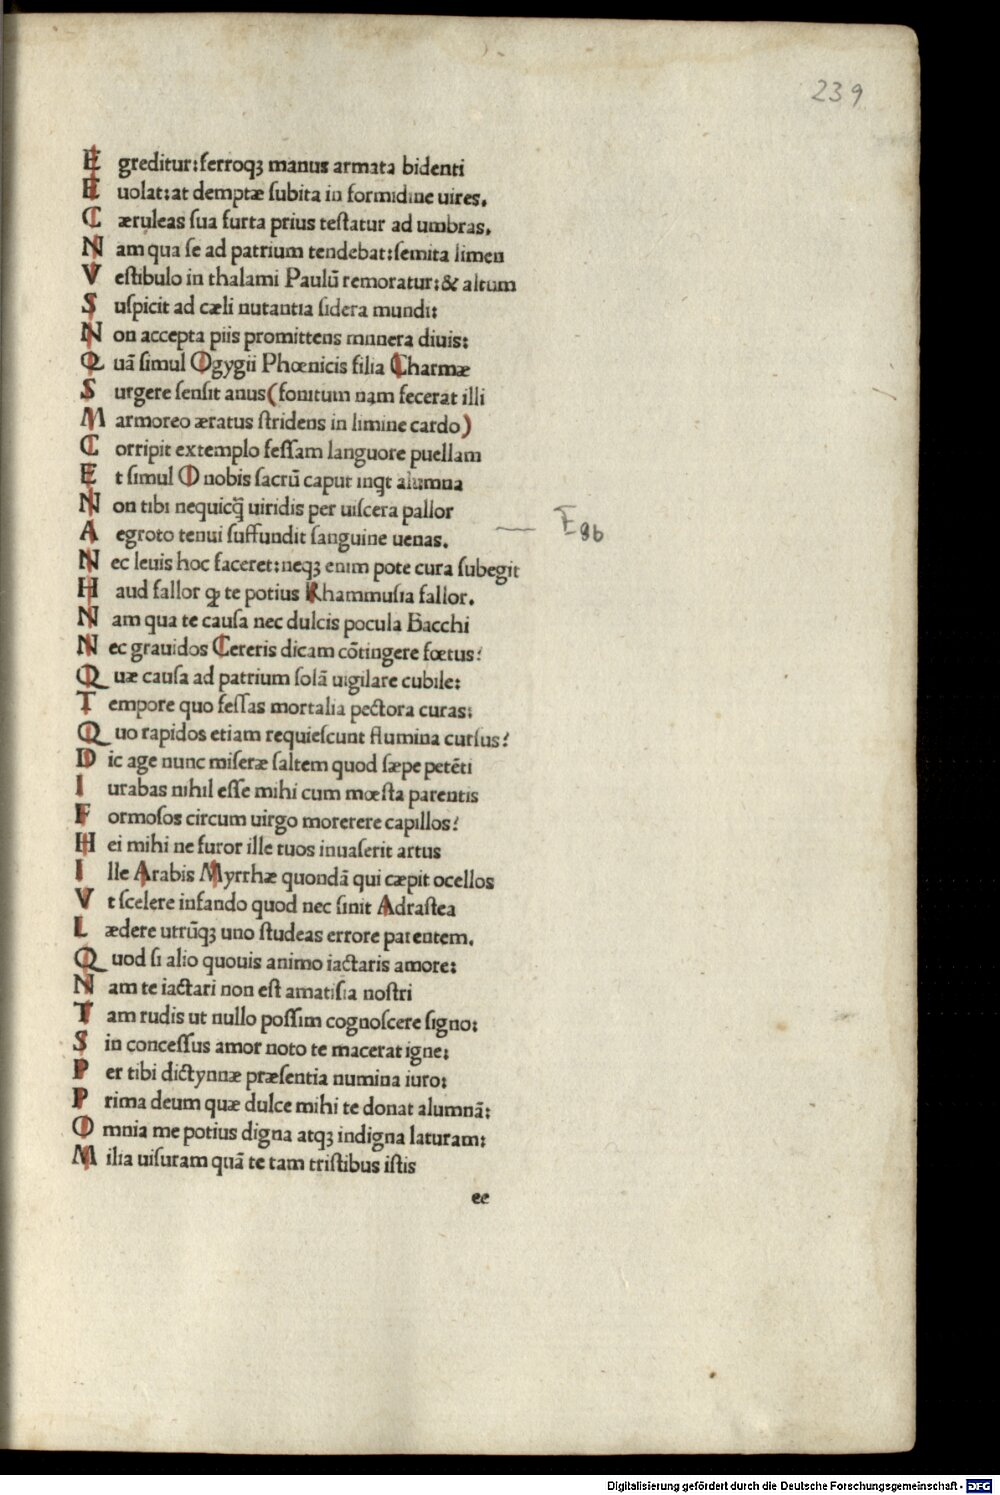 239
E greditur:ferroqꝫ manus armata bidenti
E uolat:at demptæ ſubita in formidine uires.
C æruleas ſua furta prius teſtatur ad umbras.
N am qua ſe ad patrium tendebat:ſemita limen
V eſtibulo in thalami Paulū remoratur:& altum
S uſpicit ad cæli nutantia ſidera mundi:
N on accepta piis promittens munera diuis:
Q uā ſimul Ogygii Phœnicis filia Charmæ
S urgere ſenſit anus(ſonitum nam fecerat illi
M armoreo æratus ſtridens in limine cardo)
C orripit extemplo feſſam languore puellam
E t ſimul O nobis ſacrū caput inqt alumna
N on tibi nequicq̄ uiridis per uiſcera pallor
A egroto tenui ſuffundit ſanguine uenas.
N ec leuis hoc faceret:neqꝫ enim pote cura ſubegit
H aud fallor ꝙ te potius Rhammuſia fallor.
N am qua te cauſa nec dulcis pocula Bacchi
N ec grauidos Cereris dicam cōtingere fœtus?
Q uæ cauſa ad patrium ſolā uigilare cubile:
T empore quo feſſas mortalia pectora curas:
Q uo rapidos etiam requieſcunt flumina curſus?
D ic age nunc miſeræ ſaltem quod ſæpe petēti
I urabas nihil eſſe mihi cum mœſta parentis
F ormoſos circum uirgo morerere capillos?
H ei mihi ne furor ille tuos inuaſerit artus
I lle Arabis Myrrhæ quondā qui cæpit ocellos
V t ſcelere infando quod nec ſinit Adraſtea
L ædere utrūqꝫ uno ſtudeas errore parentem.
Q uod ſi alio quouis animo iactaris amore:
N am te iactari non eſt amatiſia noſtri
T am rudis ut nullo poſſim cognoſcere ſigno:
S in conceſſus amor noto te macerat igne:
P er tibi dictynnæ præſentia numina iuro:
P rima deum quæ dulce mihi te donat alumnā:
O mnia me potius digna atqꝫ indigna laturam:
M ilia uiſuram quā te tam triſtibus iſtis
ee
Digitalisierung gefördert durch die Deutsche Forschungsgemeinschaft - DFG